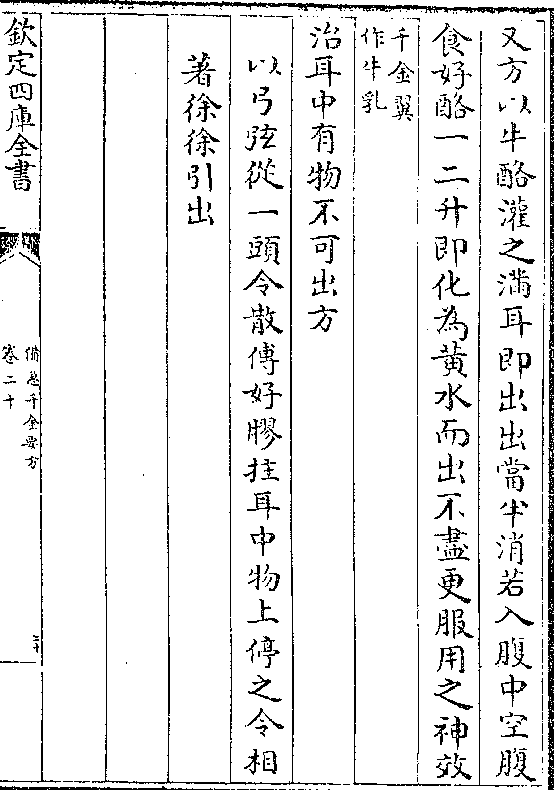 又方以牛酪灌之滿耳即出出當半消若入腹中空腹
食好酪一二升即化為黃水而出不盡更服用之神效
千金翼
作牛乳
治耳中有物不可出方
以弓弦從一頭令散傅好膠拄耳中物上停之令相
著徐徐引出
欽定四庫全書
備急千金要方
卷二十